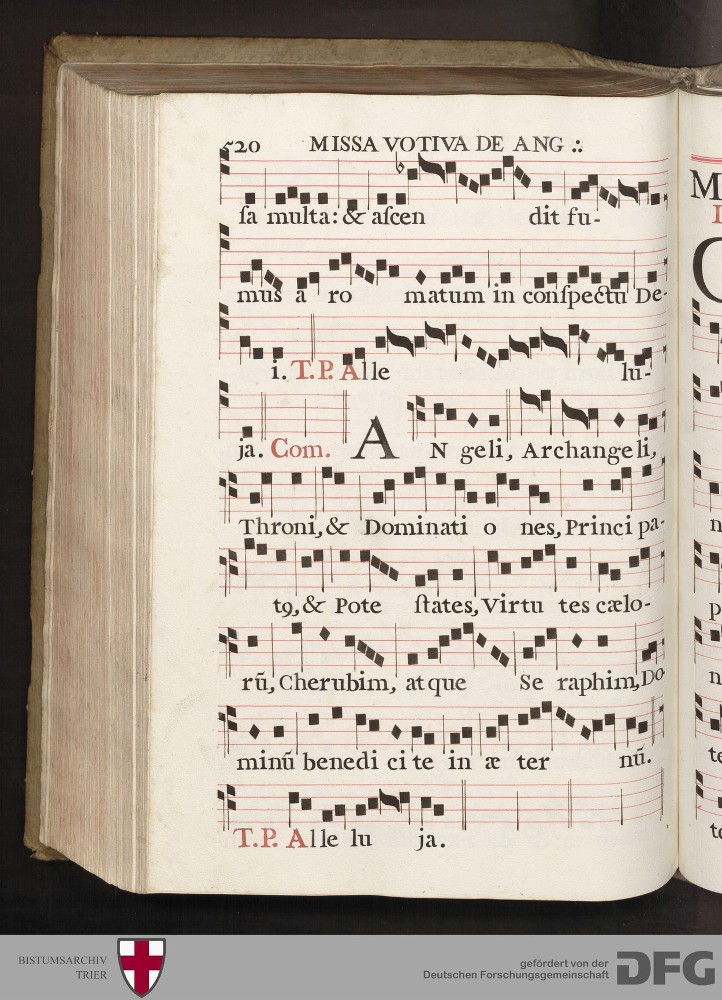 520 MISSA VOTIVA DE ANG ∴
ſa multa: & aſcen dit fu-
mus a ro matum in conſpectu De-
i. T.P. Alle lu-
ja. Com. AN geli, Archangeli,
Throni, & Dominati o nes, Princi pa-
t9, & Pote ſtates, Virtu tes cælo-
rū, Cherubim, atque Se raphim, Do-
minū benedi ci te in æ ter nū.
T.P. Alle lu ja.
M
n
p
n
te
te
BISTUMSARCHIV
TRIER
gefördert von der
Deutschen Forschungsgemeinschaft
DFG